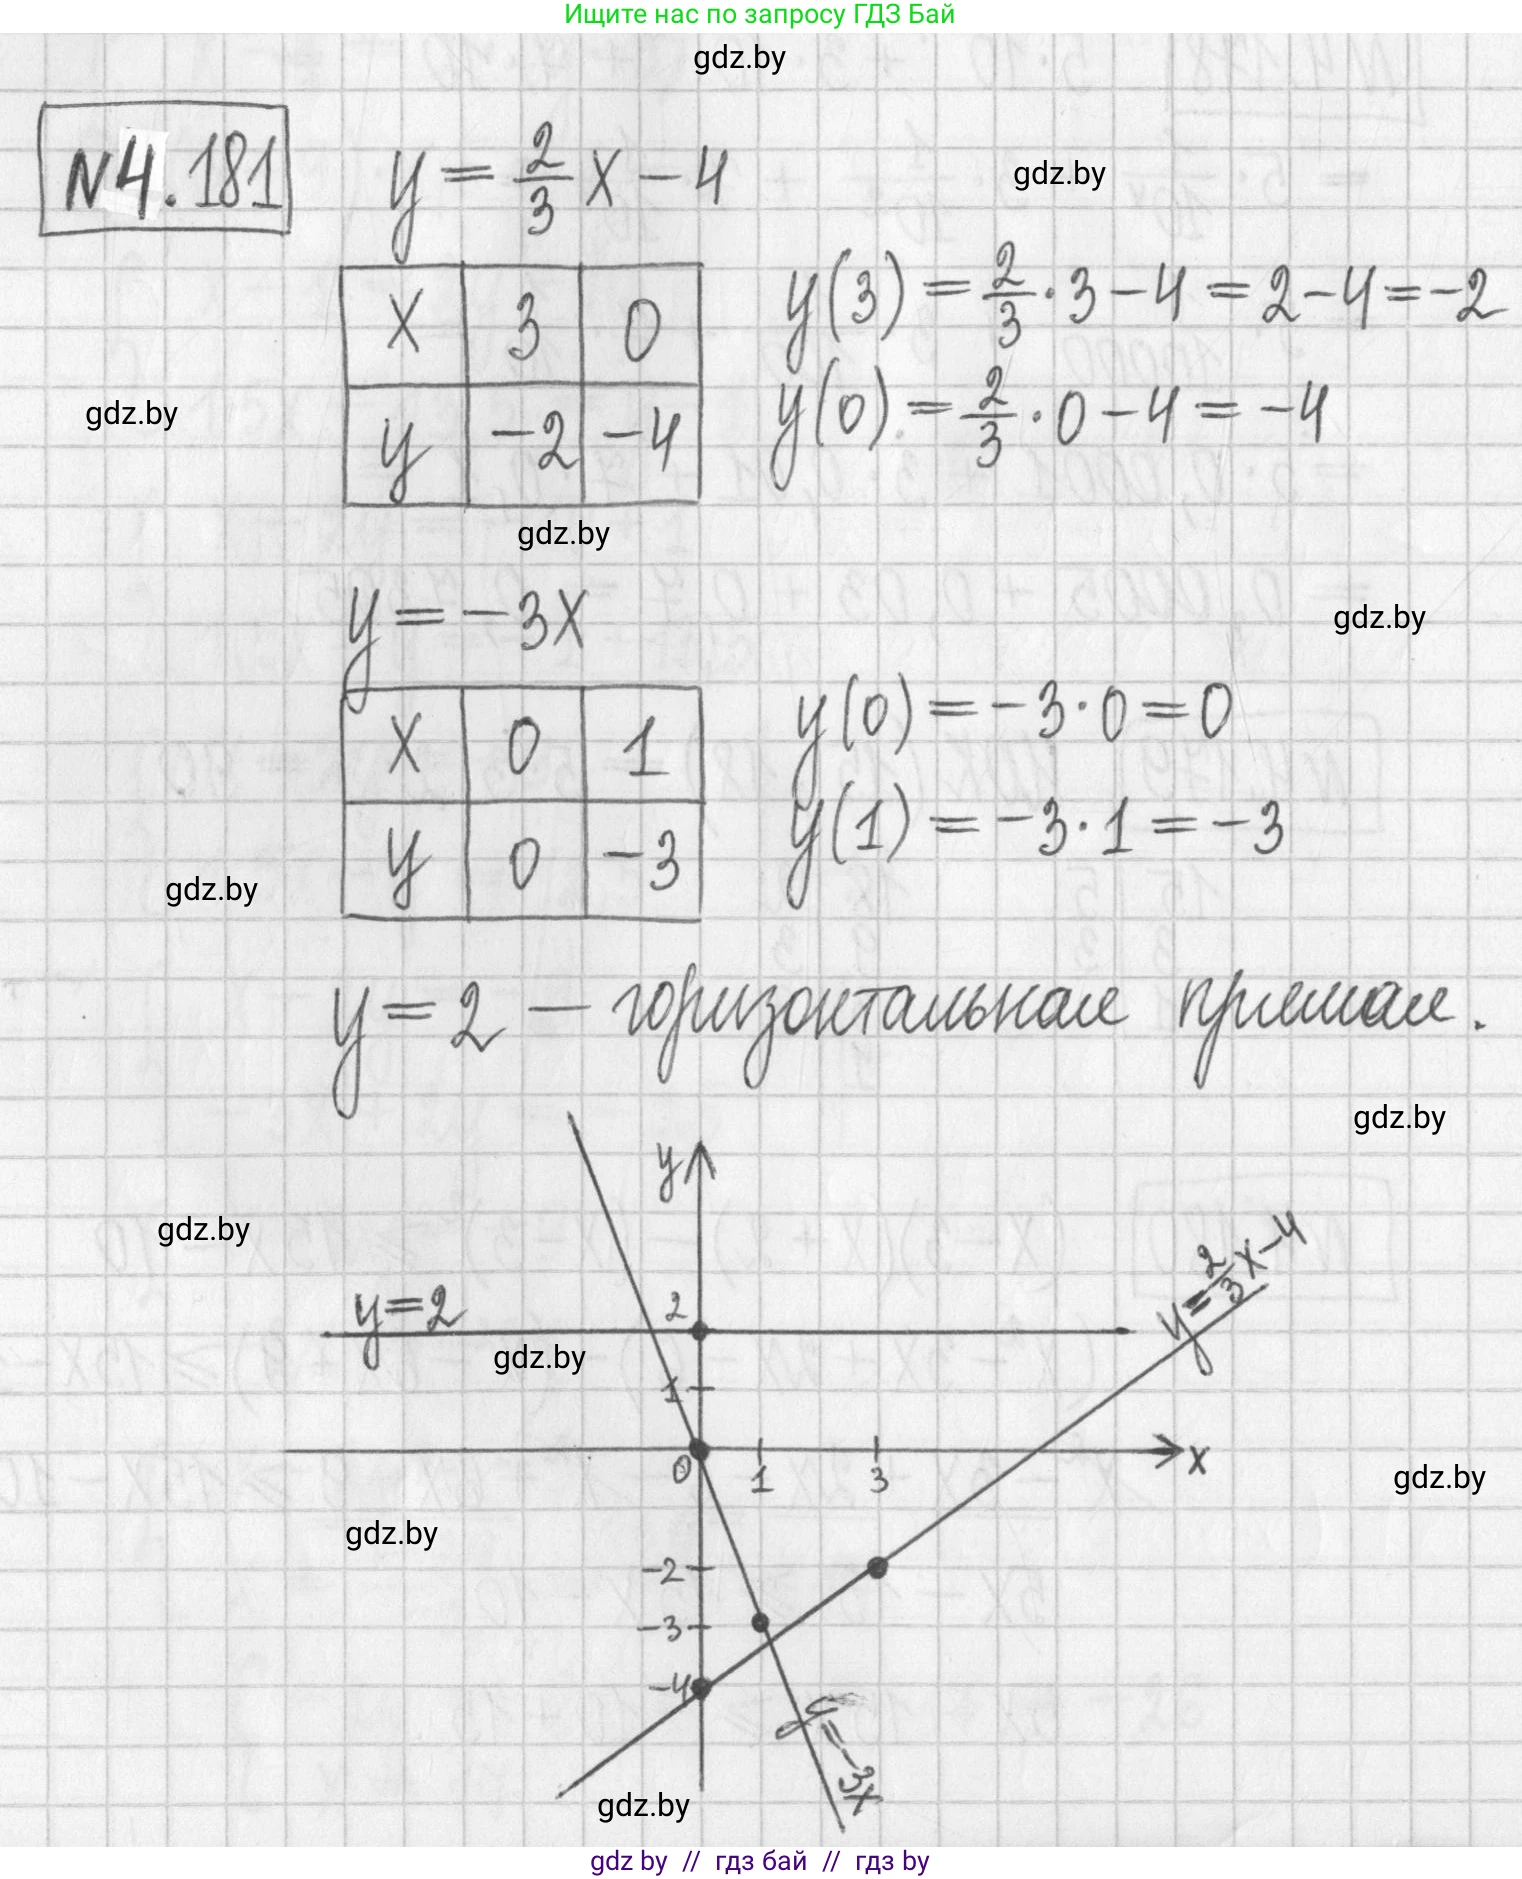 Ищите нас по запросу ГДЗ Бай
gdz.by
N4.181
y = 2/3 x - 4
gdz.by
x 3 0
y -2 -4
y(3) = 2/3 · 3 - 4 = 2 - 4 = -2
y(0) = 2/3 · 0 - 4 = -4
gdz.by
gdz.by
y = -3x
gdz.by
x 0 1
y 0 -3
y(0) = -3 · 0 = 0
y(1) = -3 · 1 = -3
gdz.by
y = 2 — горизонтальная прямая.
gdz.by
y
gdz.by
y = 2/3 x - 4
y = 2
2
gdz.by
1
0 1 3 x
gdz.by
gdz.by
-2
-3
-4
y = -3x
gdz.by
gdz by // гдз бай // гдз by